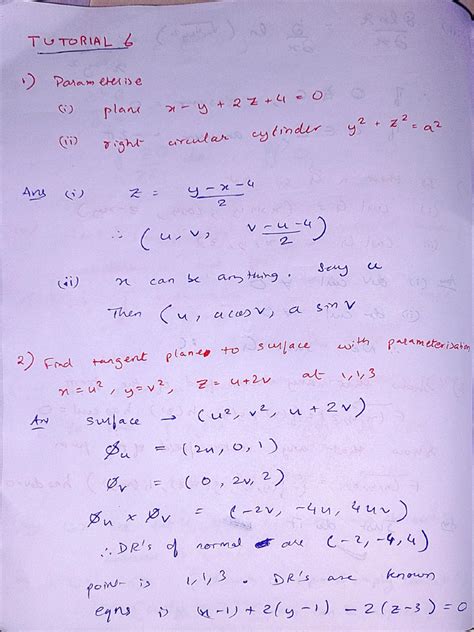 TUTORIAL 6
1) Parameterise
(i) plane x - y + 2z + 4 = 0
(ii) right circular cylinder y² + z² = a²
Ans (i) z = (y-x-4)/2
∴ (u, v, (v-u-4)/2)
(ii) x can be anything. Say u
Then (u, a cos v, a sin v)
2) Find tangent plane to surface with parameterisation
x = u², y = v², z = u+2v at 1,1,3
An surface → (u², v², u + 2v)
Øu = (2u, 0, 1)
Øv = (0, 2v, 2)
Øu × Øv = (-2v, -4u, 4uv)
∴ DR's of normal are (-2, -4, 4)
point is 1,1,3. DR's are known
eqns is (x-1) + 2(y-1) - 2(z-3) = 0